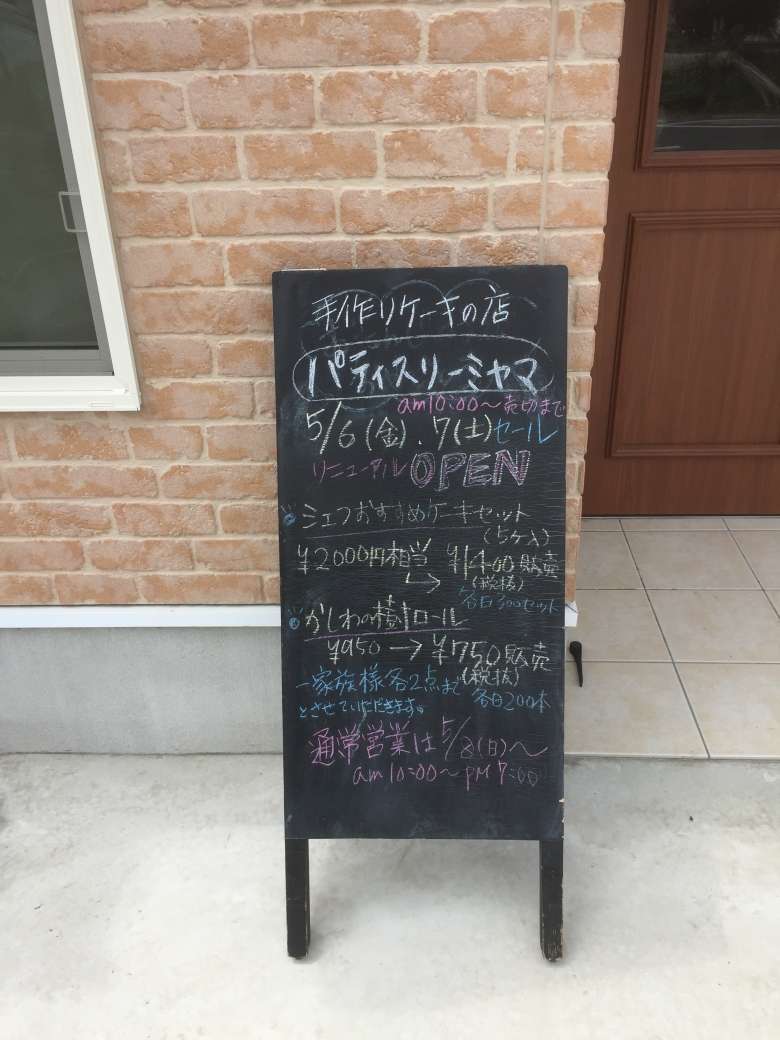 手作りケーキの店
パティスリーミヤマ
am10:00〜売切まで
5/6(金).7(土)セール
リニューアルOPEN
シェフおすすめケーキセット
(5ヶ入)
¥2000円相当 → ¥1400販売
(税抜)
各日300セット
かしわの樹ロール
¥950→¥750販売
(税抜)
一家族様各2点まで
各日200本
とさせていただきます。
通常営業は5/8(日)〜
am10:00〜PM7:00